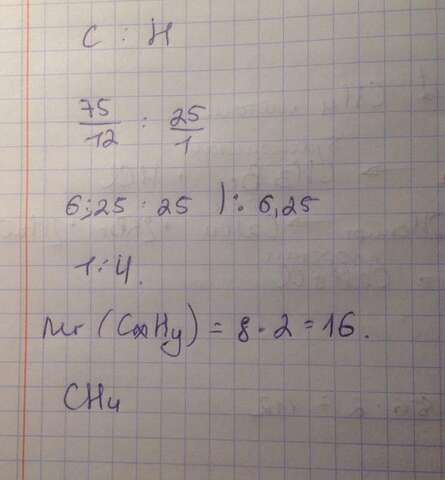 C : H
75/12 : 25/1
6,25 : 25 ) : 6,25
1 : 4.
Mr (CxHy) = 8 · 2 = 16.
CH4